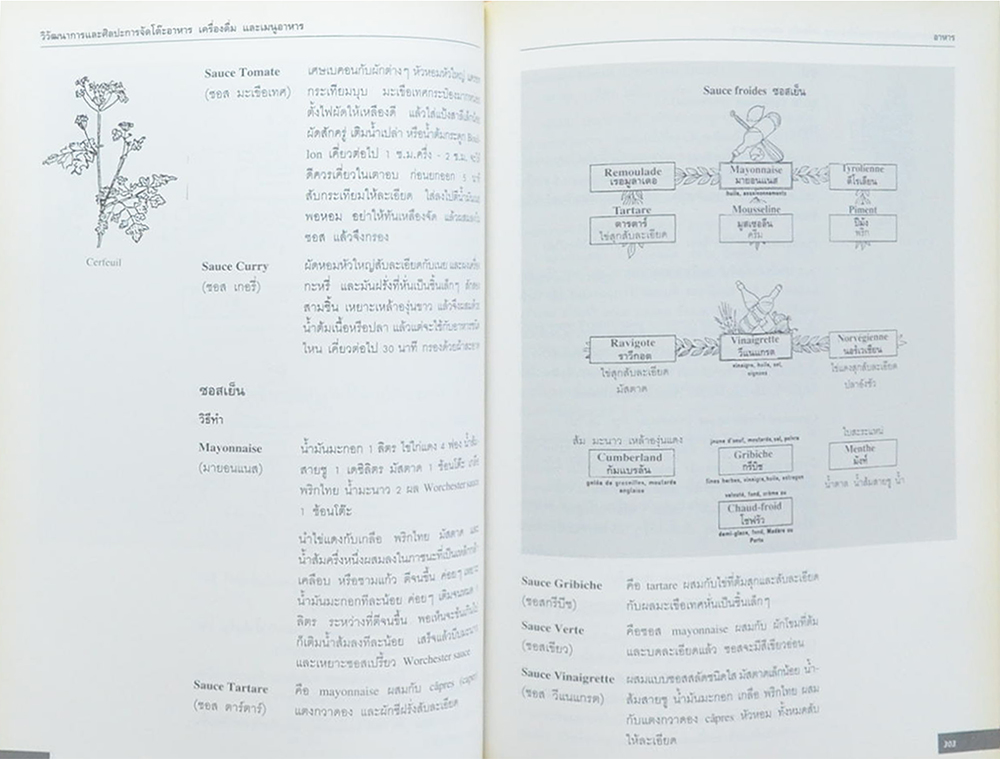 วิวัฒนาการและศิลปะการจัดโต๊ะอาหาร เครื่องดื่ม และเมนูอาหาร
Cerfeuil
Sauce Tomate
(ซอส มะเขือเทศ)
เศษเบคอนกับผักต่างๆ หัวหอมหัวใหญ่
กระเทียมทุบ มะเขือเทศกระป๋อง
ตั้งไฟผัดให้เหลืองดี แล้วใส่แป้งสาลีเล็กน้อย
ผัดสักครู่ เติมน้ำเปล่า หรือน้ำต้มกระดูก Bouil-
lon เคี่ยวต่อไป 1 ช.ม.ครึ่ง - 2 ช.ม.
ดีควรเคี่ยวในเตาอบ ก่อนยกออก 5 นาที
สับกระเทียมให้ละเอียด ใส่ลงไป
พอหอม อย่าให้ทันเหลืองจัด แล้ว
ซอส แล้วจึงกรอง
Sauce Curry
(ซอส เกอรี่)
ผัดหอมหัวใหญ่สับละเอียดกับเนย และผง
กะหรี่ และมันฝรั่งที่หั่นเป็นชิ้นเล็กๆ สัก
สามชิ้น เหยาะเหล้าองุ่นขาว แล้วจึงผสมด้วย
น้ำต้มเนื้อหรือปลา แล้วแต่จะใช้กับอาหารชนิด
ไหน เคี่ยวต่อไป 30 นาที กรองด้วยผ้าสะอาด
ซอสเย็น
วิธีทำ
Mayonnaise
(มายอนแนส)
น้ำมันมะกอก 1 ลิตร ไข่ไก่แดง 4 ฟอง น้ำส้ม
สายชู 1 เดซิลิตร มัสตาด 1 ช้อนโต๊ะ เกลือ
พริกไทย น้ำมะนาว 2 ผล Worchester sauce
1 ช้อนโต๊ะ
นำไข่แดงกับเกลือ พริกไทย มัสตาด และ
น้ำส้มครึ่งหนึ่งผสมลงในภาชนะที่เป็น
เคลือบ หรือชามแก้ว ตีจนขึ้น ค่อยๆ เหยาะ
น้ำมันมะกอกทีละน้อย ค่อยๆ เติมจนหมด 1
ลิตร ระหว่างที่ตีจนขึ้น พอเห็นจะข้นเกินไป
ก็เติมน้ำส้มลงทีละน้อย เสร็จแล้วบีบมะนาว
และเหยาะซอสเปรี้ยว Worchester sauce
Sauce Tartare
(ซอส ตาร์ตาร์)
คือ mayonnaise ผสมกับ câpres (caper)
แตงกวาดอง และผักชีฝรั่งสับละเอียด
อาหาร
Sauce froides ซอสเย็น
Remoulade
เรอมูลาเดอ
Mayonnaise
มายอนแนส
huile, assaisonnements
Tyrolienne
ตีโรเลียน
Tartare
ตารตาร์
ไข่สุกสับละเอียด
Mousseline
มูสเซอลีน
ครีม
Piment
ปีม้ง
พริก
Ravigote
ราวีกอต
ไข่สุกสับละเอียด
มัสตาด
Vinaigrette
วีแนแกรต
vinaigre, huile, sel,
oignons
Norvégienne
นอร์เวเชียน
ไข่แดงสุกสับละเอียด
ปลาอังชัว
ส้ม มะนาว เหล้าองุ่นแดง
Cumberland
กัมแบรลัน
gelée de groseilles, moutarde
anglaise
jaune d'oeuf, moutarde, sel, poivre
Gribiche
กรีบิช
fines herbes, vinaigre, huile, estragon
ใบสะระแหน่
Menthe
ม้งท์
น้ำตาล น้ำส้มสายชู น้ำ
velouté, fond, crème ou
Chaud-froid
โชฟรัว
demi-glace, fond, Madère ou
Porto
Sauce Gribiche
(ซอสกรีบีช)
คือ tartare ผสมกับไข่ที่ต้มสุกและสับละเอียด
กับผลมะเขือเทศหั่นเป็นชิ้นเล็กๆ
Sauce Verte
(ซอสเขียว)
คือซอส mayonnaise ผสมกับ ผักโขมที่ต้ม
และบดละเอียดแล้ว ซอสจะมีสีเขียวอ่อน
Sauce Vinaigrette
(ซอส วีแนแกรต)
ผสมแบบซอสสลัดชนิดใส มัสตาดเล็กน้อย น้ำ-
ส้มสายชู น้ำมันมะกอก เกลือ พริกไทย ผสม
กับแตงกวาดอง câpres หัวหอม ทั้งหมดสับ
ให้ละเอียด
202